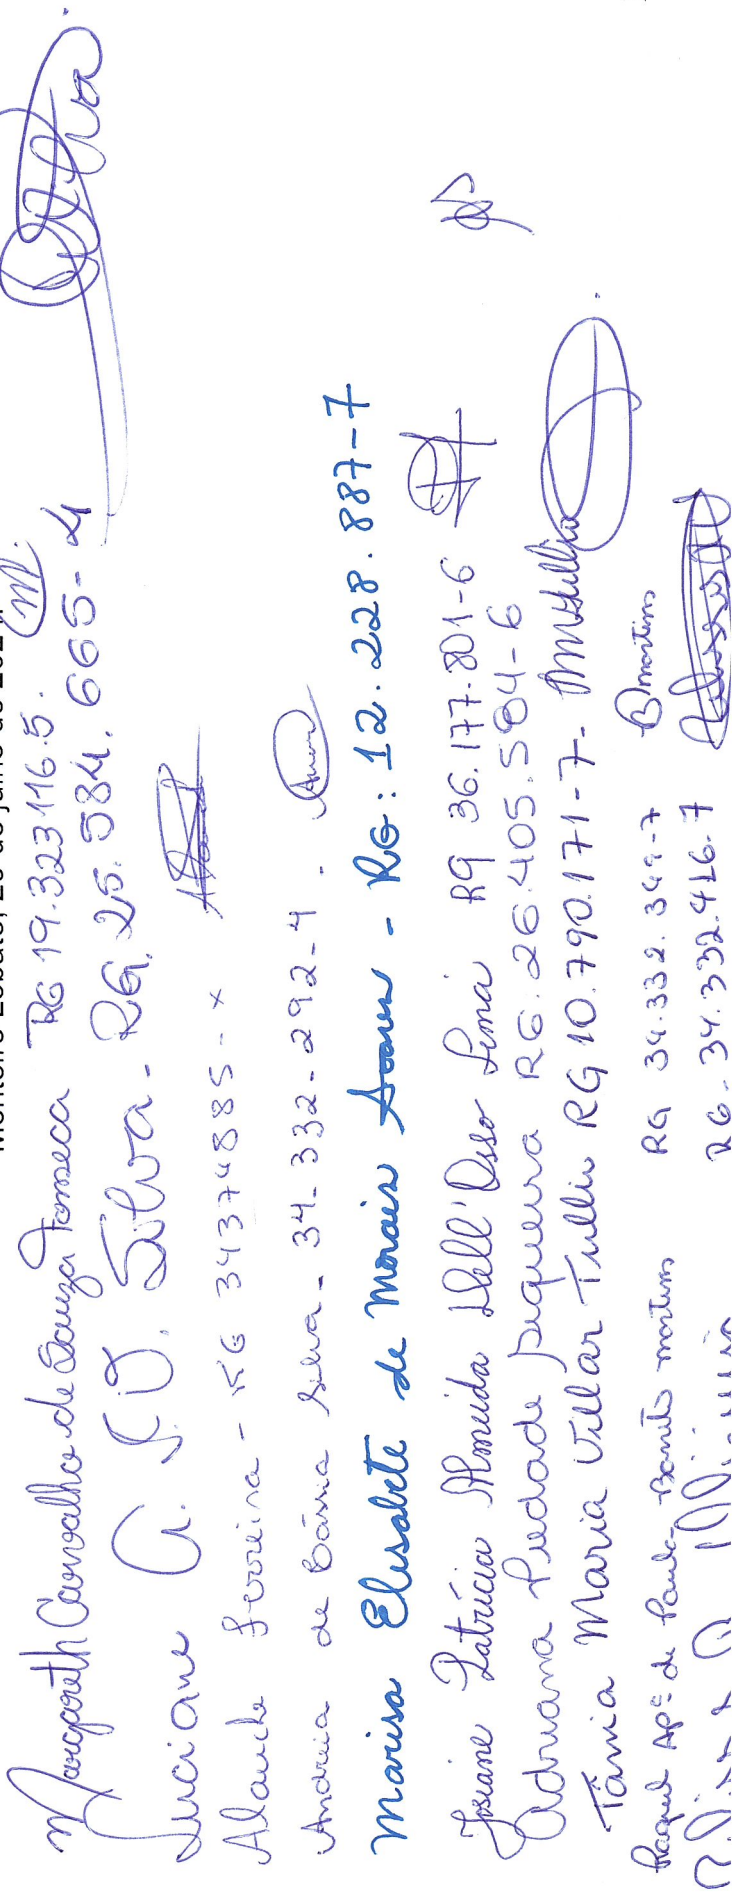 Margareth Carvalho de Souza Fonseca RG 19.323116.5.
Luciane G. S. D. Silva - RG. 25.584.665-4
Alauche Ferreira - RG 34374885-x
Andreia de Cássia Silva - 34-332-292-4.
Marisa Elisabete de Morais Soares - RG: 12.228.887-7
Josiane Patrícia Almeida Dall'Osso Lima RG 36.177.801-6
Adriana Piedade Siqueira RG. 26.405.504-6
Tânia Maria Villar Tullio RG 10.790.171-7-
Raquel Apª de Paula Bonito Martins RG 34.332.349-7 BMartins
RG - 34.332.416.7